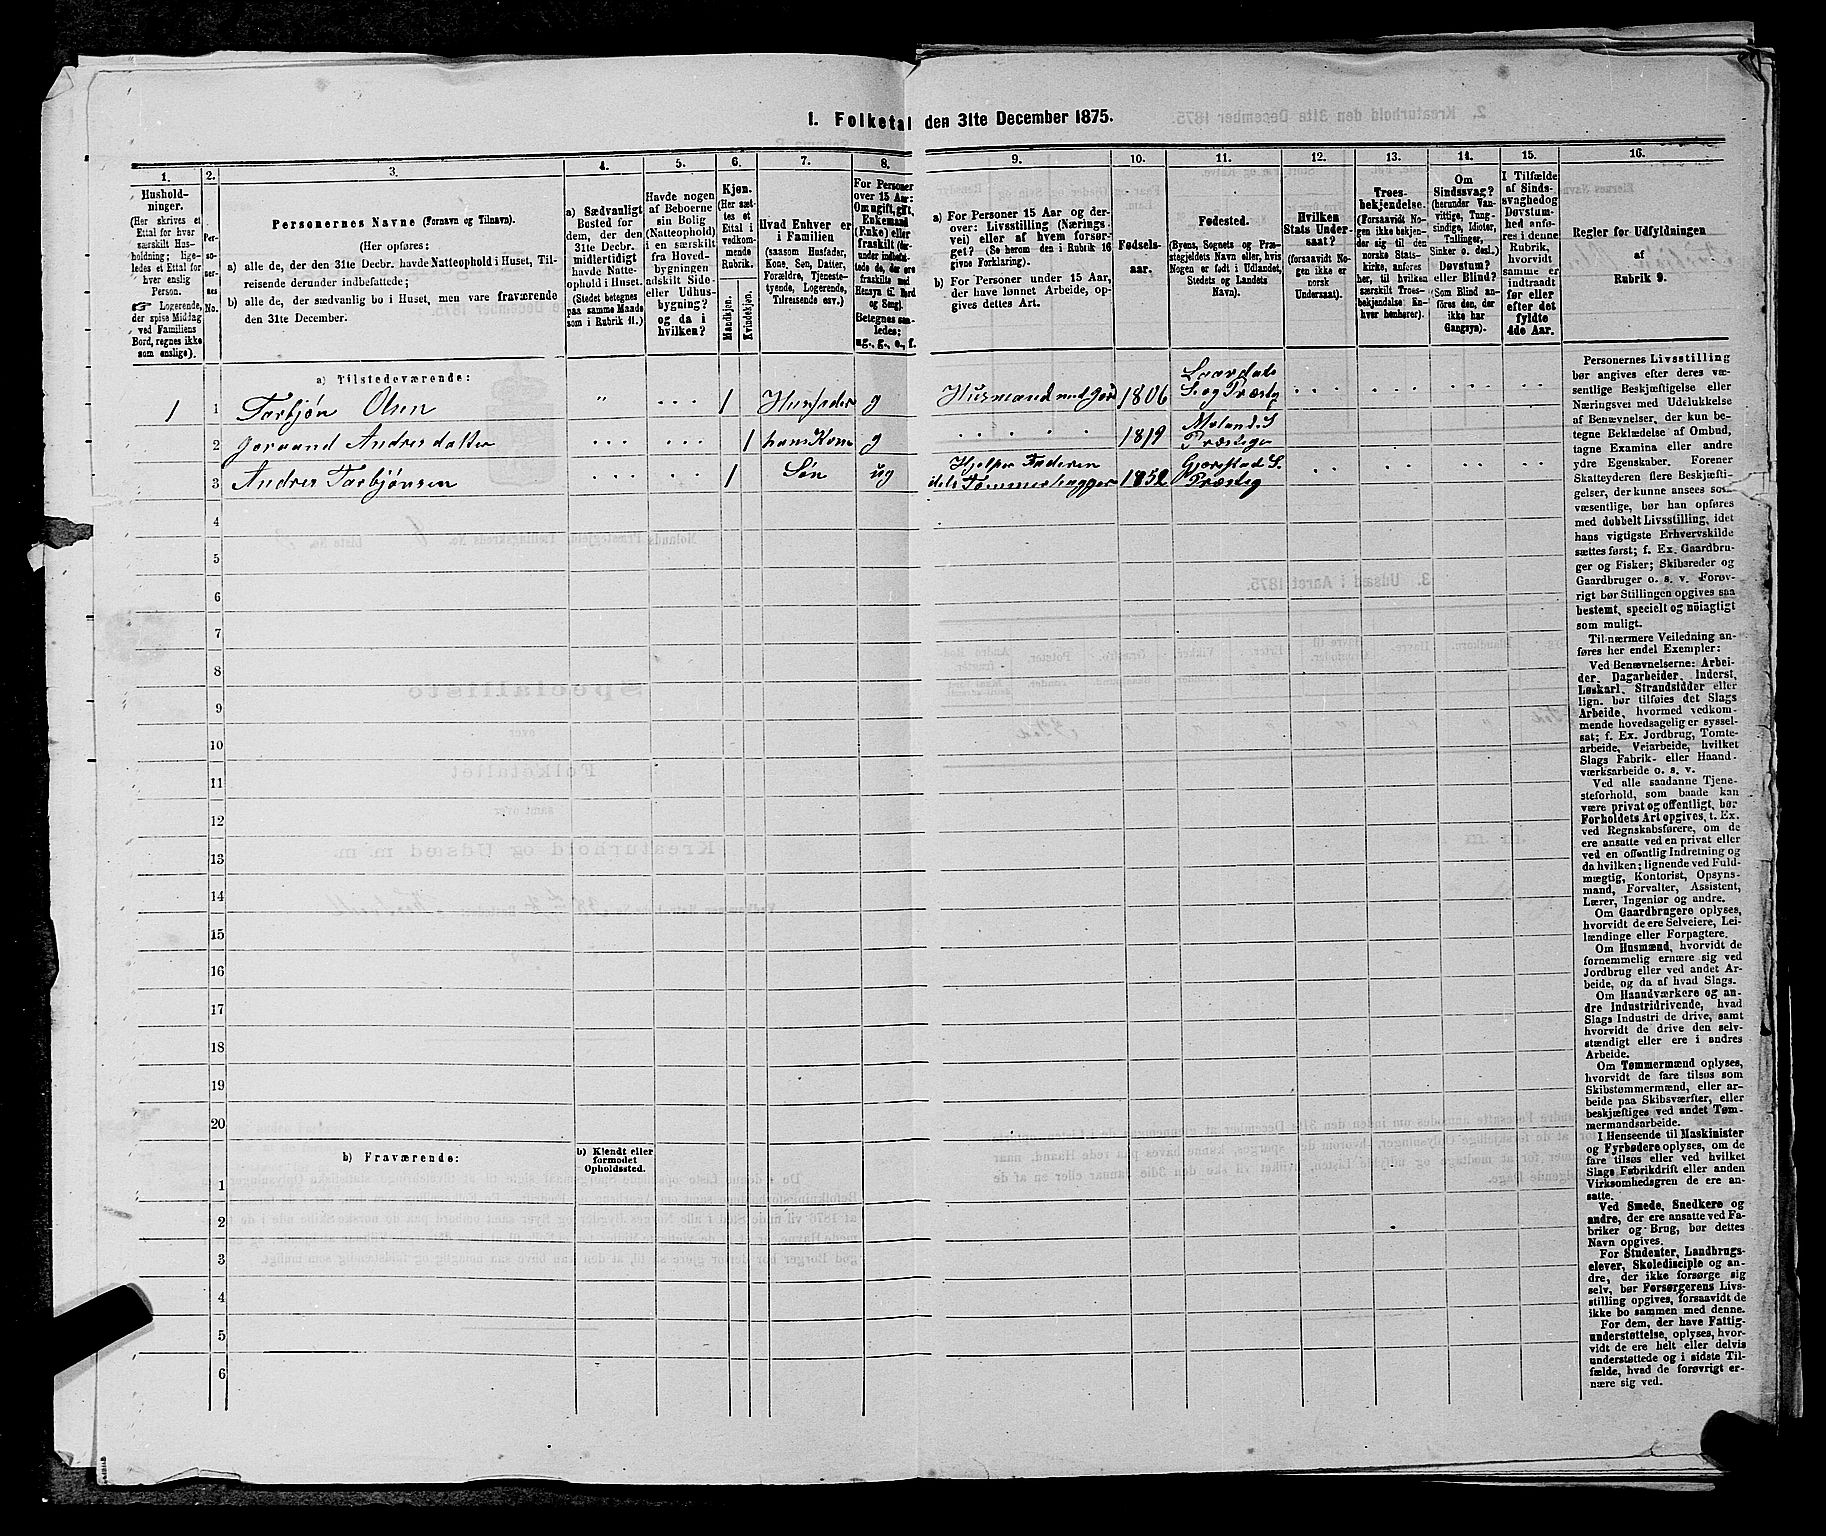 1. Folketal den 31te December 1875.
1.
Hushold-
ninger.
(Her skrives et
Ettal for hver
særskilt Hus-
holdning; lige-
ledes et Ettal for
hver enslig
Person.
☞ Logerende,
der spise Middag
ved Familiens
Bord, regnes ikke
som enslige).
2.
Per-
soner-
nes
No.
3.
Personernes Navne (Fornavn og Tilnavn).
(Her opføres:
a) alle de, der den 31te Decbr. havde Natteophold i Huset, Til-
reisende derunder indbefattede;
b) alle de, der sædvanlig bo i Huset, men vare fraværende
den 31te December.
4.
a) Sædvanligt
Bosted for
dem, der den
31te Decbr.
midlertidigt
havde Natte-
ophold i Huset.
(Stedet betegnes
paa samme Maade
som i Rubrik 11.)
5.
Havde nogen
af Beboerne
sin Bolig
(Natteophold)
i en særskilt
fra Hoved-
bygningen
adskilt Side-
eller Udhus-
bygning?
og da i
hvilken?
6.
Kjøn.
(Her sæt-
tes et
Ettal i
vedkom-
mende
Rubrik.
Mandkjøn.
Kvindekjøn.
7.
Hvad Enhver er
i Familien
(saasom Husfader,
Kone, Søn, Datter,
Forældre, Tjeneste-
tyende, Logerende,
Tilreisende osv.)
8.
For Personer
over 15 Aar:
Om ugift, gift,
Enkemand
(Enke) eller
fraskilt (der-
under indbefat-
tede de, der ere
fraskilte med
Hensyn til Bord
og Seng).
Betegnes saa-
ledes:
ug., g., e., f.
9.
a) For Personer 15 Aar og der-
over: Livsstilling (Nærings-
vei) eller af hvem forsør-
get? (Se herom den i Rubrik 16
givne Forklaring).
b) For Personer under 15 Aar,
der have lønnet Arbeide, op-
gives dettes Art.
10.
Fødsels-
aar.
11.
Fødested.
(Byens, Sognets og Præ-
stegjeldets Navn eller, hvis
Nogen er født i Udlandet,
Stedets og Landets
Navn).
12.
Hvilken
Stats Under-
saat?
(forsaavidt No-
gen ikke er
norsk
Undersaat).
13.
Troes-
bekjendelse.
(Forsaavidt No-
gen ikke bekjen-
der sig til den
norske Stats-
kirke, anføres
her, til hvilken
særskilt Troes-
bekjendelse En-
hver henhører).
14.
Om
Sindssvag?
(herunder Van-
vittige, Tung-
sindige, Idioter,
Tullinger,
Sinker o. desl.)
Døvstum?
eller Blind?
(Som Blind an-
føres den, der
ikke har
Gangsyn).
15.
I Tilfælde
af Sinds-
svaghed og
Døvstum-
hed anfø-
res i denne
Rubrik,
hvorvidt
samme er
indtraadt
før eller
efter det
fyldte
4de Aar.
16.
Regler for Udfyldningen
af
Rubrik 9.
a) Tilstedeværende:
1 1 Tarbjøn Olsen " . . . 1 Husfader g Husmand med Jord 1806 Laardals Sog Præstg
2 Joraand Andresdatter . . . . . . 1 hans Kone g . . . . . 1819 Molands S Præstegj
3 Andres Tarbjønsen . . . . . . 1 Søn ug Hjelper Faderen dels Tømmerhugger 1852 Gjerstad S. Præstg
4
5
6
7
8
9
10
11
12
13
14
15
16
17
18
19
20
b) Fraværende:
b) Kjendt eller
formodet
Opholdssted.
1
2
3
4
5
6
Personernes Livsstilling
bør angives efter deres væ-
sentlige Beskjæftigelse eller
Næringsvei med Udelukkelse
af Benævnelser, der kun be-
tegne Beklædelse af Ombud,
tagne Examina eller andre
ydre Egenskaber. Forener
Skatteyderen flere Beskjæfti-
gelser, der kunne ansees som
væsentlige, bør han opføres
med dobbelt Livsstilling, idet
hans vigtigste Erhvervskilde
sættes først; f. Ex. Gaardbru-
ger og Fisker; Skibsreder og
Gaardbruger o. s. v. Forøv-
rigt bør Stillingen opgives saa
bestemt, specielt og nøiagtigt
som muligt.
Til nærmere Veiledning an-
føres her endel Exempler:
Ved Benævnelserne: Arbei-
der, Dagarbeider, Inderst,
Løskarl, Strandsidder eller
lign. bør tilføies det Slags
Arbeide, hvormed vedkom-
mende hovedsagelig er syssel-
sat; f. Ex. Jordbrug, Tomte-
arbeide, Veiarbeide, hvilket
Slags Fabrik- eller Haand-
værksarbeide o. s. v.
Ved alle saadanne Tjene-
steforhold, som baade kan
være privat og offentligt, bør
Forholdets Art opgives, t. Ex.
ved Regnskabsførere, om de
ere ansatte ved en privat eller
ved en offentlig Indretning og
da hvilken; lignende ved Fuld-
mægtig, Kontorist, Opsyns-
mand, Forvalter, Assistent,
Lærer, Ingeniør og andre.
Om Gaardbrugere oplyses,
hvorvidt de ere Selveiere, Lei-
lændinge eller Forpagtere.
Om Husmænd, hvorvidt de
fornemmelig ernære sig ved
Jordbrug eller ved andet Ar-
beide, og da af hvad Slags.
Om Haandværkere og an-
dre Industridrivende, hvad
Slags Industri de drive, samt
hvorvidt de drive den selv-
stændigt eller ere i andres
Arbeide.
Om Tømmermænd oplyses,
hvorvidt de fare tilsøs som
Skibstømmermænd, eller ar-
beide paa Skibsværfter, eller
beskjæftiges ved andet Tøm-
mermandsarbeide.
I Henseende til Maskinister
og Fyrbødere oplyses, om de
fare tilsøs eller ved hvilket
Slags Fabrikdrift eller anden
Virksomhedsgren de ere an-
satte.
Ved Smede, Snedkere og
andre, der ere ansatte ved Fa-
briker og Brug, bør dettes
Navn opgives.
For Studenter, Landbrugs-
elever, Skoledisciple og an-
dre, der ikke forsørge sig
selv, bør Forsørgerens Livs-
stilling opgives, forsaavidt de
ikke bo sammen med denne.
For dem, der have Fattig-
understøttelse, oplyses, hvor-
vidt de ere helt eller delvis
understøttede og i sidste Til-
fælde, hvad de forøvrigt er-
nære sig ved.